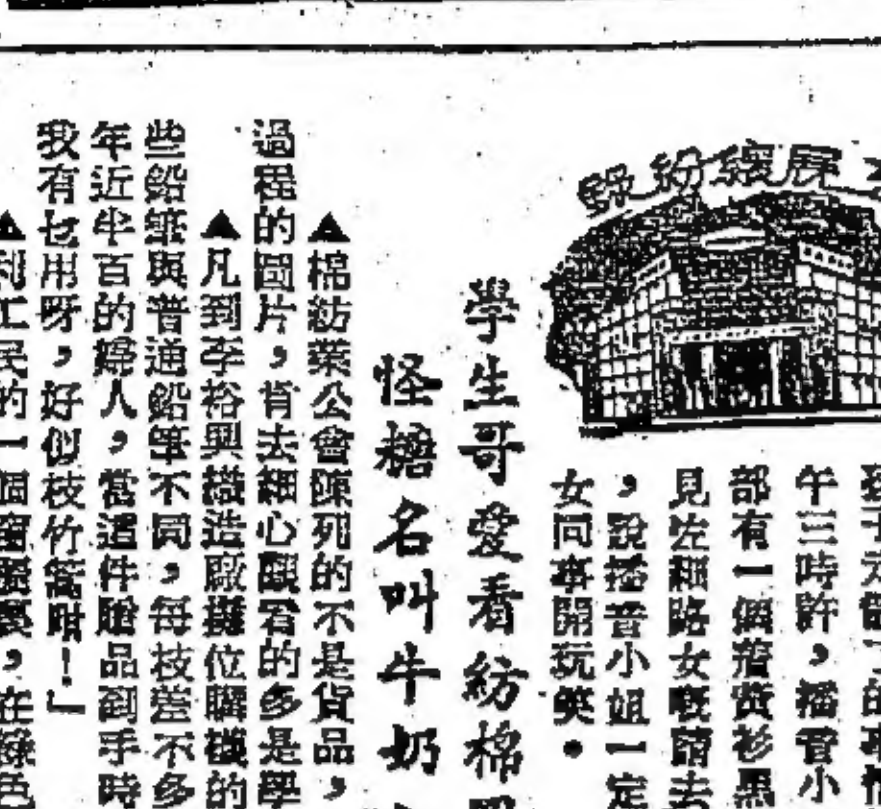 繽紛
午三時許，播音小
部有一個着黃衫黑
見左細路女嘅請去
，說播音小姐一定
女同事開玩笑。
學生哥愛看紡棉
怪糖名叫牛奶
▲棉紡業公會陳列的不是貨品，
過程的圖片，肯去細心觀看的多是學
▲凡到李裕興織造廠攤位購機的
些鉛筆與普通鉛筆不同，每枝差不多
年近半百的婦人，當這件贈品到手時
我有乜用呀，好似枝竹篙咁！」
▲利工民的一個窗，在綠色